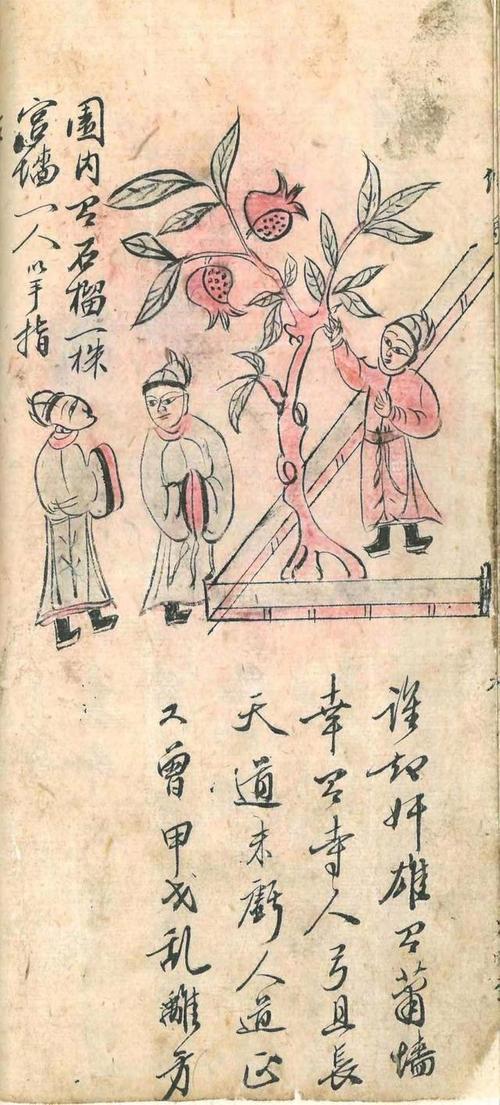 園内有石榴一株
宫墻一人以手指
誰知奸雄有蕭墻
幸有寺人弓且長
天道未虧人道正
又曾甲戌乱離方